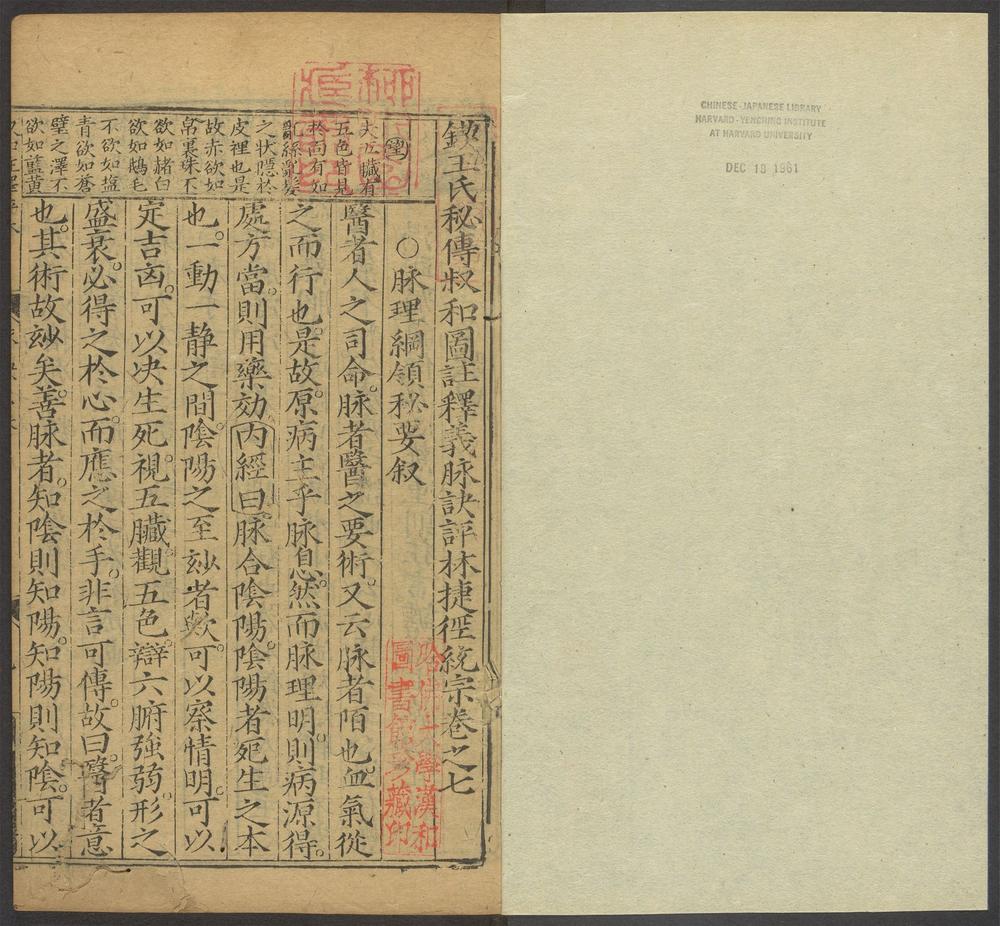 CHINESE-JAPANESE LIBRARY
HARVARD-YENCHING INSTITUTE
AT HARVARD UNIVERSITY
DEC 13 1961
鍥王氏秘傳叔和圖註釋義脉訣評林捷徑統宗卷之七
○脉理綱領秘要叙
醫者人之司命。脉者醫之要術。又云脉者陌也。血氣從
之而行也。是故原病主乎脉息。然而脉理明。則病源得。
處方當。則用藥効内經曰脉合陰陽。陰陽者死生之本
也。一動一静之間。陰陽之至玅者歟。可以察情明。可以
定吉凶。可以决生死。視五臟。觀五色。辯六腑強弱。形之
盛衰。必得之於心。而應之於手。非言可傳。故曰。醫者意
也。其術故玅矣。善脉者。知陰則知陽。知陽則知陰。可以
夫五臟有
五色皆見
於面有如
絲亂髮
之状隱於
皮裡也是
故赤欲如
帛裹珠不
欲如赭白
欲如鵝毛
不欲如塩
青欲如蒼
璧之澤不
欲如藍黄
哈佛大學漢和
圖書館珍藏印